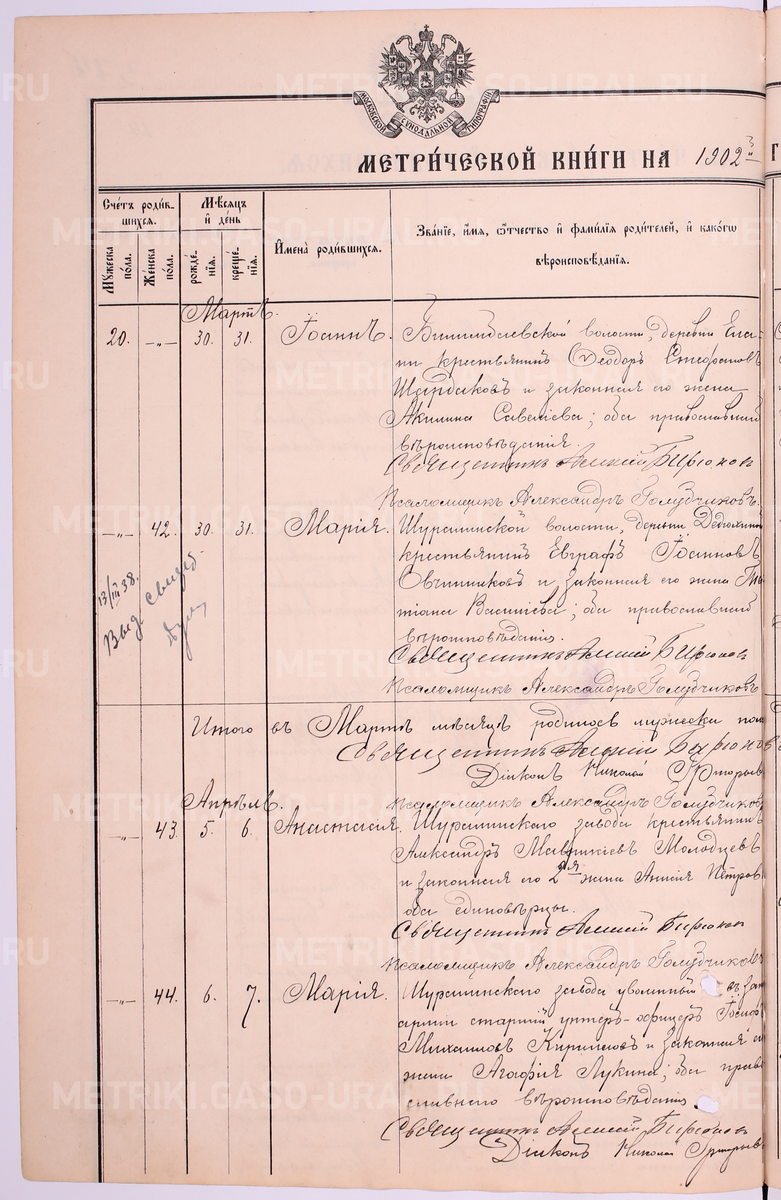 МОСКОВСКОЙ СѴНОДАЛЬНОЙ ТИПОГРАФІИ
МЕТРИ́ЧЕСКОЙ КНИ́ГИ НА 1902 Г
Сче́тъ роди́в-
шихся.
Мꙋ́жеска по́ла.
Же́нска по́ла.
Мѣ́сяцъ и҆ де́нь
рожде́-
нїѧ.
креще́-
нїѧ.
И҆мена̀ роди́вшихся.
Зва́нїе, и҆́мѧ, ѻ҆́тчество и҆ фами́лїѧ роди́телей, и҆ како́гѡ
вѣроисповѣ́данїѧ.
Мартъ.
20. —„— 30. 31. Іоаннъ. Билимбаевской волости, деревни
крестьянинъ Ѳеодоръ Стефановъ
Шардаковъ и законная его жена
Акилина Савелiева; оба православнаго
вѣроисповѣданія.
Священникъ Алексій Бирюковъ
Псаломщикъ Александръ Голубчиковъ.
—„— 42. 30. 31. Марія. волости, деревни
крестьянинъ Евграфъ Іоанновъ
Овчинниковъ и законная его жена Та
тіана Василіева; оба православнаго
вѣроисповѣданія.
Священникъ Алексій Бирюковъ
Псаломщикъ Александръ Голубчиковъ
13/III 38.
Выд. свидет.
Итого въ Мартѣ мѣсяцѣ родилось мужеска пола
Священникъ Алексій Бирюковъ
Діаконъ Николай
Псаломщикъ Александръ Голубчиковъ
Апрѣль.
—„— 43. 5. 6. Анастасія. завода крестьянинъ
Александръ Маврикіевъ Молодцевъ
и законная его 2ая жена Анисія Петров
оба единовѣрцы.
Священникъ Алексій Бирюковъ
Псаломщикъ Александръ Голубчиковъ
—„— 44. 6. 7. Марія. завода уволенный въ зап
арміи старшій унтеръ-офицеръ Іосифъ
Михаиловъ Кирилловъ и законная его
жена Агафія Лукина; оба право
славнаго вѣроисповѣданія.
Священникъ Алексій Бирюковъ
Діаконъ Николай
METRIKI.GASO-URAL.RU